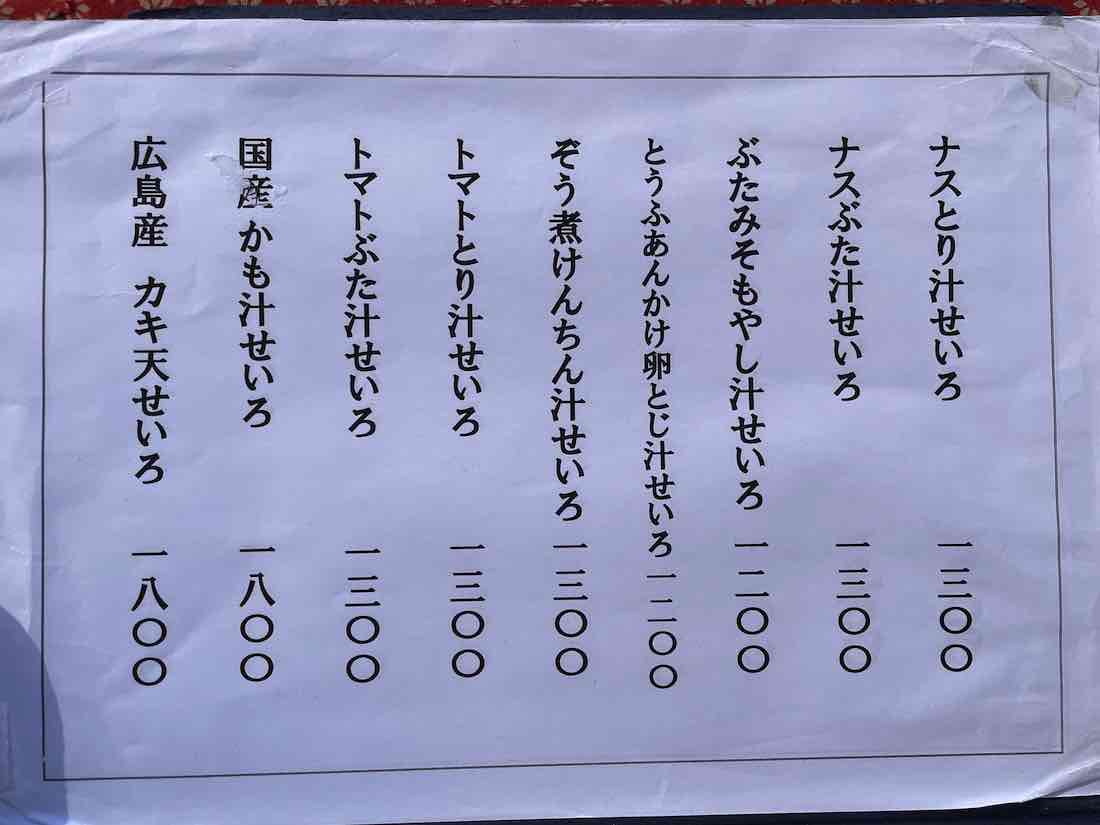 ナスとり汁せいろ 一三〇〇
ナスぶた汁せいろ 一三〇〇
ぶたみそもやし汁せいろ 一二〇〇
とうふあんかけ卵とじ汁せいろ 一二〇〇
ぞう煮けんちん汁せいろ 一三〇〇
トマトとり汁せいろ 一三〇〇
トマトぶた汁せいろ 一三〇〇
国産かも汁せいろ 一八〇〇
広島産 カキ天せいろ 一八〇〇